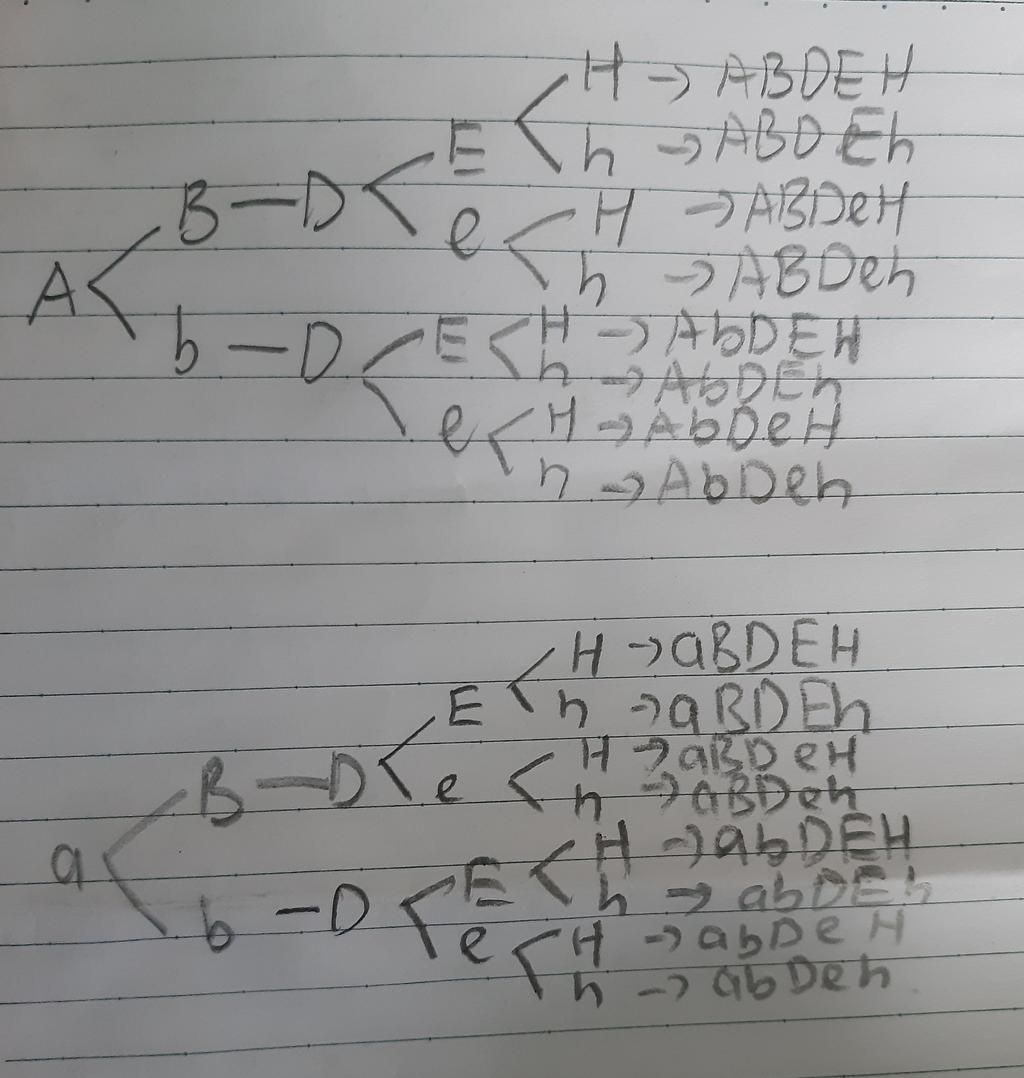 H → ABDEH
E
h → ABDEh
B — D
H → ABDeH
e
h → ABDeh
A
E H → AbDEH
b — D
h → AbDEh
e H → AbDeH
h → AbDeh
H → aBDEH
E h → aBDEh
H → aBDeH
B — D e h → aBDeh
a
H → abDEH
E
b — D h → abDEh
e H → abDeH
h → abDeh